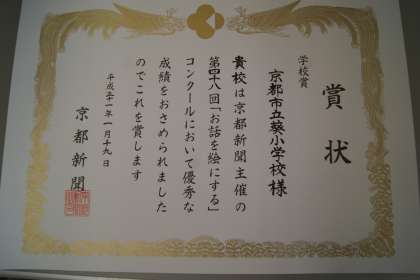 賞状
学校賞
京都市立葵小学校様
貴校は京都新聞主催の
第四十八回「お話を絵にする」
コンクールにおいて優秀な
成績をおさめられました
のでこれを賞します
平成二十一年一月十九日
京都新聞